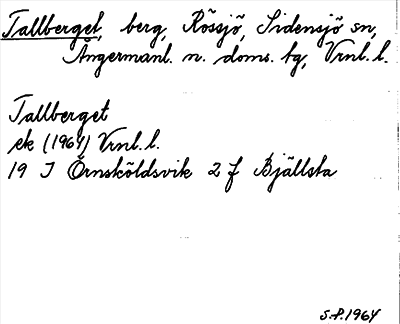 Tallberget, berg, Rössjö, Sidensjö sn,
Ångermanl. n. doms. tg, Vrnl. l.
Tallberget
ek (1964) Vrnl. l.
19 I Örnsköldsvik 2 f Bjällsta
S.P. 1964